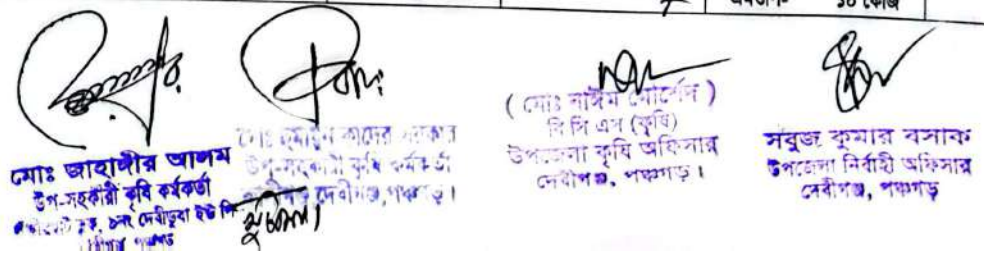 ১০ কেজি
মোঃ জাহাঙ্গীর আলম
উপ-সহকারী কৃষি কর্মকর্তা
দেবীডুবা ইউ পি
মোঃ হুমায়ুন কাদের সরকার
উপ-সহকারী কৃষি কর্মকর্তা
দেবীগঞ্জ, পঞ্চগড়।
( মোঃ নাঈম মোর্শেদ )
বি সি এস (কৃষি)
উপজেলা কৃষি অফিসার
দেবীগঞ্জ, পঞ্চগড়।
সবুজ কুমার বসাক
উপজেলা নির্বাহী অফিসার
দেবীগঞ্জ, পঞ্চগড়